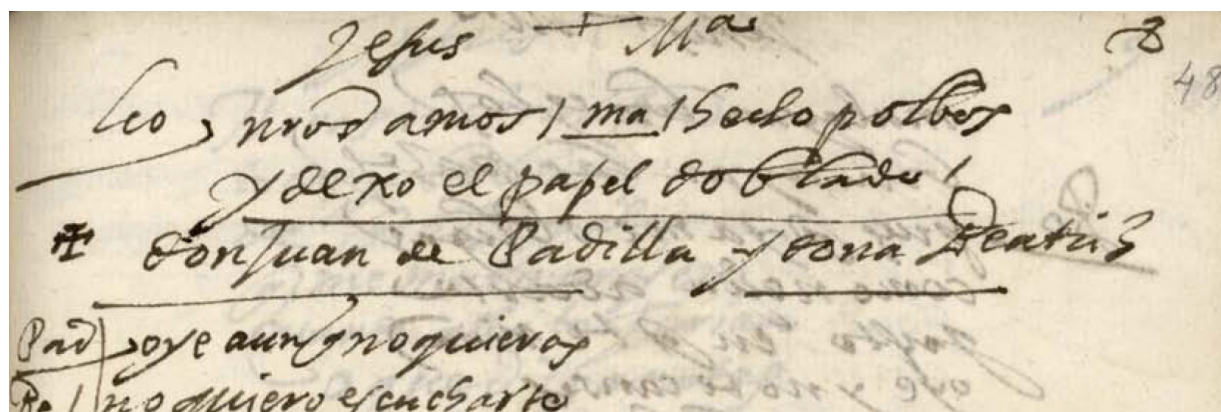 Jesus + Mª 8
48
leo, nros amos / ma / hecho polbos
y dexo el papel doblado /
don Juan de Padilla y dona Beatris
Pad / oye aunq no quieras
Be / no quiero escucharte